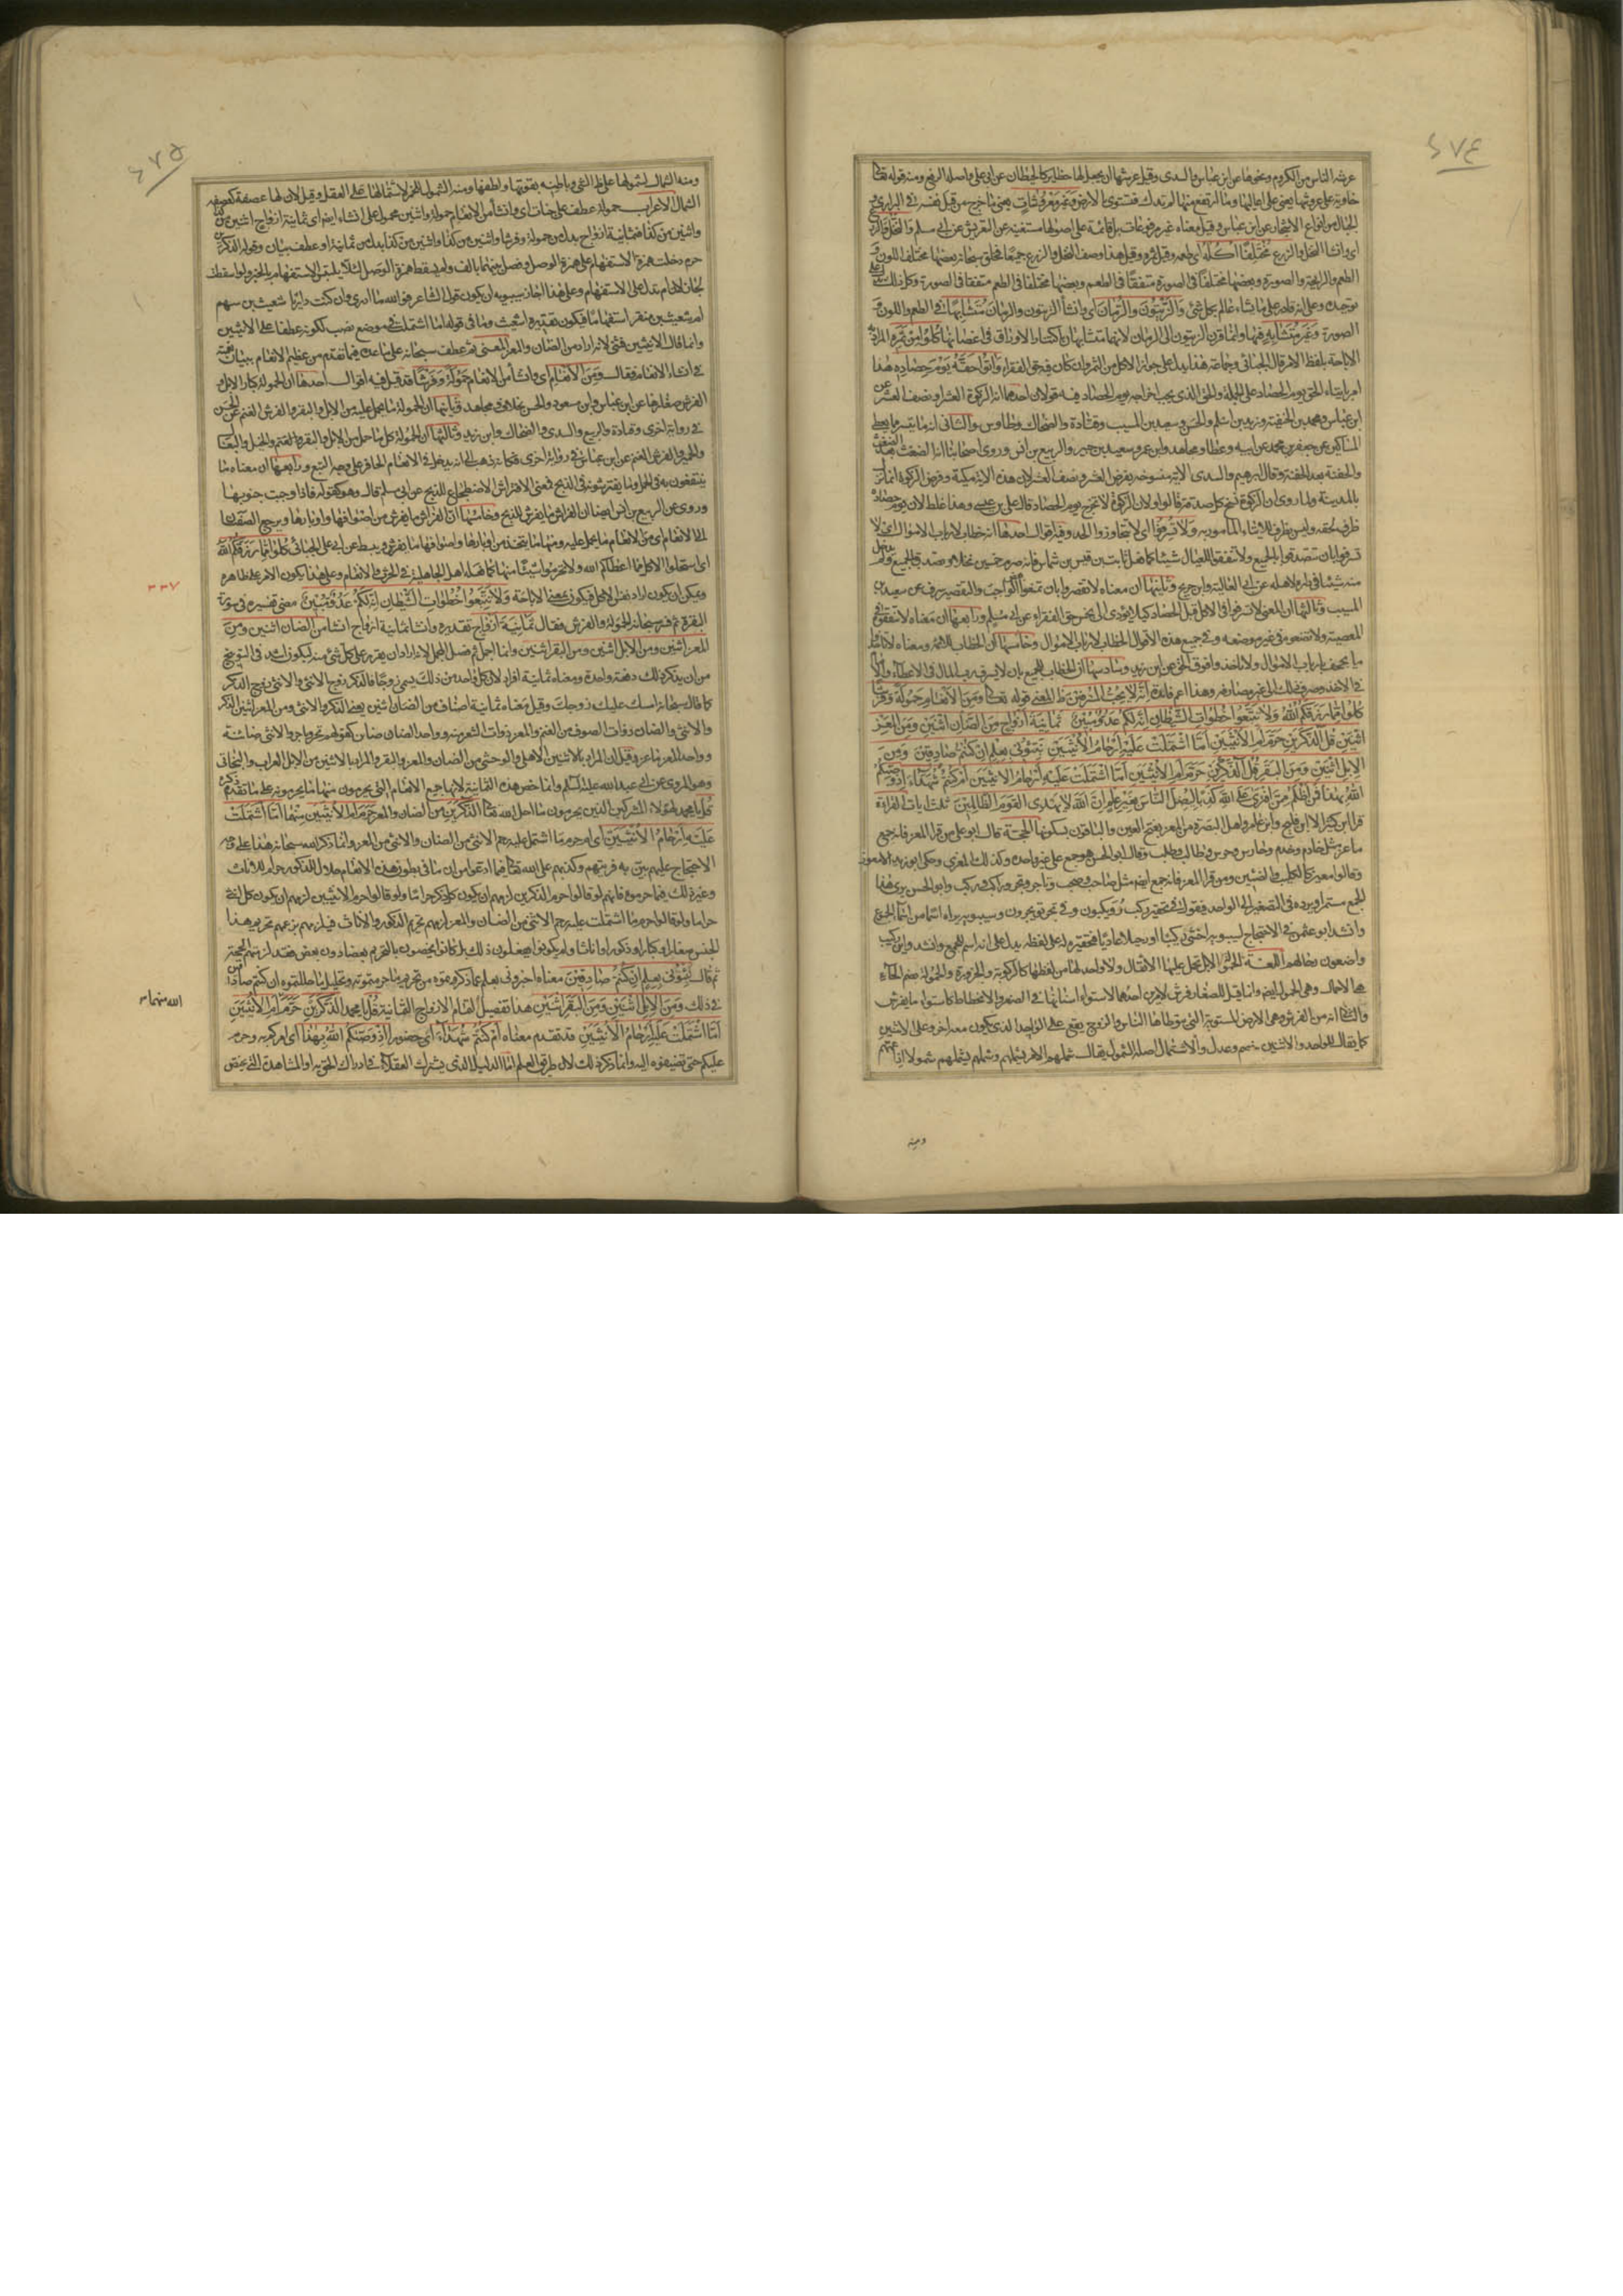 ۶۷۴
عرشه الناس من الكروم ونحوها عن ابن عباس والسدى وقيل عرشها ان يجعل لها حظاير كالحيطان عن ابى على واصله الرفع ومنه قوله تعالى
خاوية على عروشها يعنى على اعاليها وما ارتفع منها لم يندك فتستوى بالارض وغير معروشات يعنى ما خرج من قبل نفسه فى البرارى و
الجبال من انواع الاشجار عن ابن عباس وقيل معناه غير مرفوعات بل قائمة على اصولها مستغنية عن التعريش عن ابى مسلم والنخل والزرع
اى وانشا النخل والزرع مختلفا اكله اى طعمه وقيل ثمره وقيل هذا وصف النخل والزرع جميعا فخلق سبحانه بعضها مختلف اللون و
الطعم والرايحة والصورة وبعضها مختلفا فى الصورة متفقا فى الطعم وبعضها مختلفا فى الطعم متفقا فى الصورة وكل ذلك يدل على
توحيده وعلى انه قادر على ما يشاء عالم بكل شئ والزيتون والرمان اى وانشا الزيتون والرمان متشابها فى الطعم واللون و
الصورة وغير متشابه فيها وانما قرن الزيتون الى الرمان لانهما متشابهان باكتناز الاوراق فى اغصانها كلوا من ثمره المراد به
الاباحة بلفظ الامر قال الجبائى وجماعة هذا يدل على جواز الاكل من الثمر وان كان فيه حق الفقراء واتوا حقه يوم حصاده هذا
امر بايتاء الحق يوم الحصاد على الجملة والحق الذى يجب اخراجه يوم الحصاد فيه قولان احدهما انه الزكوة العشر او نصف العشر عن
ابن عباس ومحمد بن الحنفية وزيد بن اسلم والحسن وسعيد بن المسيب وقتادة والضحاك وطاوس والثانى انه ما تيسر مما يعطى
المساكين عن جعفر بن محمد عن ابيه وعطا ومجاهد وابن عمر وسعيد بن جبير والربيع بن انس وروى اصحابنا انه الضغث بعد الضغث
والحفنة بعد الحفنة وقال ابراهيم والسدى الاية منسوخة بفرض العشر ونصف العشر لان هذه الاية مكية وفرض الزكوة انما نزل
بالمدينة ولما روى ان الزكوة نسخ كل صدقة قالوا ولان الزكوة لا تخرج يوم الحصاد قال على بن عيسى وهذا غلط لان يوم حصاده
ظرف لحقه وليس بظرف للايتاء المامور به ولا تسرفوا اى لا تتجاوزوا الحد وفيه اقوال احدها انه خطاب لارباب الاموال اى لا
تسرفوا بان تتصدقوا بالجميع ولا تبقوا للعيال شيئا كما فعل ثابت بن قيس بن شماس فانه صرم خمسين نخلا وتصدق بالجميع ولم يدخل
منه شيئا فى داره لاهله عن ابى العالية وابن جريج وثانيها ان معناه لا تقصروا بان تمنعوا الواجب والتقصير سرف عن سعيد بن
المسيب وثالثها ان المعنى لا تسرفوا فى الاكل قبل الحصاد كيلا يؤدى الى بخس حق الفقراء عن ابى مسلم ورابعها ان معناه لا تنفقوه فى
المعصية ولا تضعوه فى غير موضعه وفى جميع هذه الاقوال الخطاب لارباب الاموال وخامسها ان الخطاب للائمة ومعناه لا تاخذوا
ما يجحف بارباب الاموال ولا تاخذوا فوق الحق عن ابن زيد وسادسها ان الخطاب للجميع بان لا يسرف رب المال فى الاعطاء ولا الامام
فى الاخذ وصرف ذلك الى غير مصارفه وهذا اعم فائدة انه لا يحب المسرفين ظ المعنى قوله تعالى ومن الانعام حمولة وفرشا
كلوا مما رزقكم الله ولا تتبعوا خطوات الشيطان انه لكم عدو مبين ثمانية ازواج من الضان اثنين ومن المعز
اثنين قل آلذكرين حرم ام الانثيين اما اشتملت عليه ارحام الانثيين نبئونى بعلم ان كنتم صادقين ومن
الابل اثنين ومن البقر اثنين قل آلذكرين حرم ام الانثيين اما اشتملت عليه ارحام الانثيين ام كنتم شهداء اذ وصيكم
الله بهذا فمن اظلم ممن افترى على الله كذبا ليضل الناس بغير علم ان الله لا يهدى القوم الظالمين ثلث ايات القراءة
قرا ابن كثير الا ابن فليح وابن عامر واهل البصرة من المعز بفتح العين والباقون بسكونها الحجة قال ابو على من قرا المعز فانه جمع
ماعز مثل خادم وخدم وحارس وحرس وطالب وطلب وقال ابو الحسن هو جمع على غير واحده وكذلك المعزى وحكى ابو زيد الامعوز
وقالوا معيز كالكليب والضئين ومن قرا المعز فانه جمع ايضا مثل صاحب وصحب وتاجر وتجر وراكب وركب وابو الحسن يرى هذا
الجمع مستمرا ويرده فى التصغير الى الواحد فيقول فى تحقير ركب رويكبون وفى تجر تويجرون وسيبويه يراه اسما من اسماء الجمع
وانشد ابو عثمن فى الاحتجاج لسيبويه اخشى ركيبا او رجيلا عاديا فتحقيره له على لفظه يدل على انه اسم للجمع وانشد واين ركيب
واضعون رحالهم اللغة الحمولة الابل تحمل عليها الاثقال ولا واحد لها من لفظها كالركوبة والجزورة والحمولة بضم الحاء
هى الاحمال وهى الحمول ايضا وانما قيل للصغار فرش لامرين احدهما لاستواء اسنانها فى الصغر والانحطاط كاستواء ما يفرش
والثانى انه من الفرش وهى الارض المستوية التى يتوطاها الناس والزوج يقع على الواحد الذى يكون معه اخر وعلى الاثنين
كما يقال للواحد والاثنين خصم وعدل والاشتمال اصله الشمول يقال شملهم الامر يشملهم وشملهم يشملهم شمولا اذا عمهم
ومنه
۶۷۵
ومنه الشمال لشمولها على ظاهر الشئ وباطنه بقوتها ولطفها ومنه الشمول للخمر لاشتمالها على العقل وقيل لان لها عصفة كعصفة
الشمال الاعراب حمولة عطف على جنات اى وانشأ من الانعام حمولة واثنين محمول على انشاء ايضا اى ثمانية ازواج اثنين من كذا
واثنين من كذا فثمانية ازواج بدل من حمولة وفرشا واثنين من كذا واثنين من كذا بدل من ثمانية او عطف بيان وقوله آلذكرين
حرم دخلت همزة الاستفهام على همزة الوصل وفصل بينهما بالف ولم يسقط همزة الوصل لئلا يلتبس الاستفهام بالخبر ولو اسقطت
لجاز لان ام تدل على الاستفهام وعلى هذا اجاز سيبويه ان يكون قول الشاعر فوالله ما ادرى وان كنت داريا شعيث بن سهم
ام شعيث بن منقر استفهاما فيكون تقديره اشعيث وما فى قوله اما اشتملت فى موضع نصب لكونه عطفا على الانثيين
وانما قال الانثيين فثنى لانه اراد من الضان والمعز المعنى ثم عطف سبحانه على ما عدده فيما تقدم من عظيم الانعام ببيان نعمته
فى انشاء الانعام فقال ومن الانعام اى وانشأ من الانعام حمولة وفرشا قد قيل فيه اقوال احدها ان الحمولة كبار الابل
الفرش صغارها عن ابن عباس وابن مسعود والحسن بخلاف ومجاهد وثانيها ان الحمولة ما يحمل عليه من الابل والبقر والفرش الغنم عن الحسن
فى رواية اخرى وقتادة والربيع والسدى والضحاك وابن زيد وثالثها ان الحمولة كل ما حمل من الابل والبقر والخيل والبغال
والحمير والفرش الغنم عن ابن عباس فى رواية اخرى فكانه ذهب الى انه يدخل فى الانعام الحافر على وجه التبع ورابعها ان معناه ما
ينتفعون به فى الحمل وما يفترشونه فى الذبح فمعنى الافتراش الاضطجاع للذبح عن ابى مسلم قال وهو كقوله فاذا وجبت جنوبها
وروى عن الربيع بن انس ايضا ان الفراش ما يفرش للذبح وخامسها ان الفراش ما يفرش من اصوافها واوبارها ويرجع الصفتان
الى الانعام اى من الانعام ما يحمل عليه ومنها ما يتخذ من اوبارها واصوافها ما يفرش ويبسط عن ابى على الجبائى كلوا مما رزقكم الله
اى استحلوا الاكل مما اعطاكم الله ولا تحرموا شيئا منها كما فعله اهل الجاهلية فى الحرث والانعام وعلى هذا يكون الامر على ظاهره
ويمكن ان يكون اراد نفس الاكل فيكون بمعنى الاباحة ولا تتبعوا خطوات الشيطان انه لكم عدو مبين مضى تفسيره فى سورة
۳۳۷
البقرة ثم فسر سبحانه الحمولة والفرش فقال ثمانية ازواج تقديره وانشا ثمانية ازواج انشا من الضان اثنين ومن
المعز اثنين ومن الابل اثنين ومن البقر اثنين وانما اجمل ثم فصل المجمل لانه اراد ان يقرر على كل شئ منه ليكون اشد فى التوبيخ
من ان يذكر ذلك دفعة واحدة ومعناه ثمانية افراد لان كل واحد من ذلك يسمى زوجا فالذكر زوج الانثى والانثى زوج الذكر
كما قال سبحانه امسك عليك زوجك وقيل معناه ثمانية اصناف من الضان اثنين يعنى الذكر والانثى ومن المعز اثنين الذكر
والانثى والضان ذوات الصوف من الغنم والمعز ذوات الشعر منه وواحد الضان ضاين كقولهم تاجر وتجر والانثى ضائنة
وواحد المعز ماعز وقيل ان المراد بالاثنين الاهلى والوحشى من الضان والمعز والبقر والمراد بالاثنين من الابل العراب والبخاتى
وهو المروى عن ابى عبد الله عليه السلم وانما خص هذه الثمانية لانها جميع الانعام التى يحرمون منها ما يحرمونه على ما تقدم ذكره
قل يا محمد لهؤلاء المشركين الذين يحرمون ما احل الله تعالى آلذكرين من الضان والمعز حرم ام الانثيين منهما اما اشتملت
عليه ارحام الانثيين اى ام حرم ما اشتمل عليه رحم الانثى من الضان والانثى من المعز وانما ذكر الله سبحانه هذا على وجه
الاحتجاج عليهم بين به فريتهم وكذبهم على الله تعالى فيما ادعوا من ان ما فى بطون هذه الانعام حلال للذكور حرام للاناث
وغير ذلك فيما حرموه فانهم لو قالوا حرم الذكرين لزمهم ان يكون كل ذكر حراما ولو قالوا حرم الانثيين لزمهم ان يكون كل انثى
حراما ولو قالوا حرم ما اشتملت عليه رحم الانثى من الضان والمعز لزمهم تحريم الذكور والاناث فيلزمهم بزعمهم تحريم هذا
الجنس صغارا وكبارا وذكورا واناثا ولم يكونوا يفعلون ذلك بل كانوا يخصون بالتحريم بعضا دون بعض فقد لزمتهم الحجة
ثم قال نبئونى بعلم ان كنتم صادقين معناه اخبرونى بعلم عما ذكرتموه من تحريم ما حرمتموه وتحليل ما حللتموه ان كنتم صادقين
فى ذلك ومن الابل اثنين ومن البقر اثنين هذا تفصيل لتمام الازواج الثمانية قل يا محمد آلذكرين حرم ام الانثيين
الله منهما
اما اشتملت عليه ارحام الانثيين قد تقدم معناه ام كنتم شهداء اى حضورا اذ وصيكم الله بهذا اى امركم به وحرمه
عليكم حتى تضيفوه اليه وانما ذكر ذلك لان طريق العلم اما الدليل الذى يشترك العقلاء فى ادراك الحق به او المشاهدة التى يختص